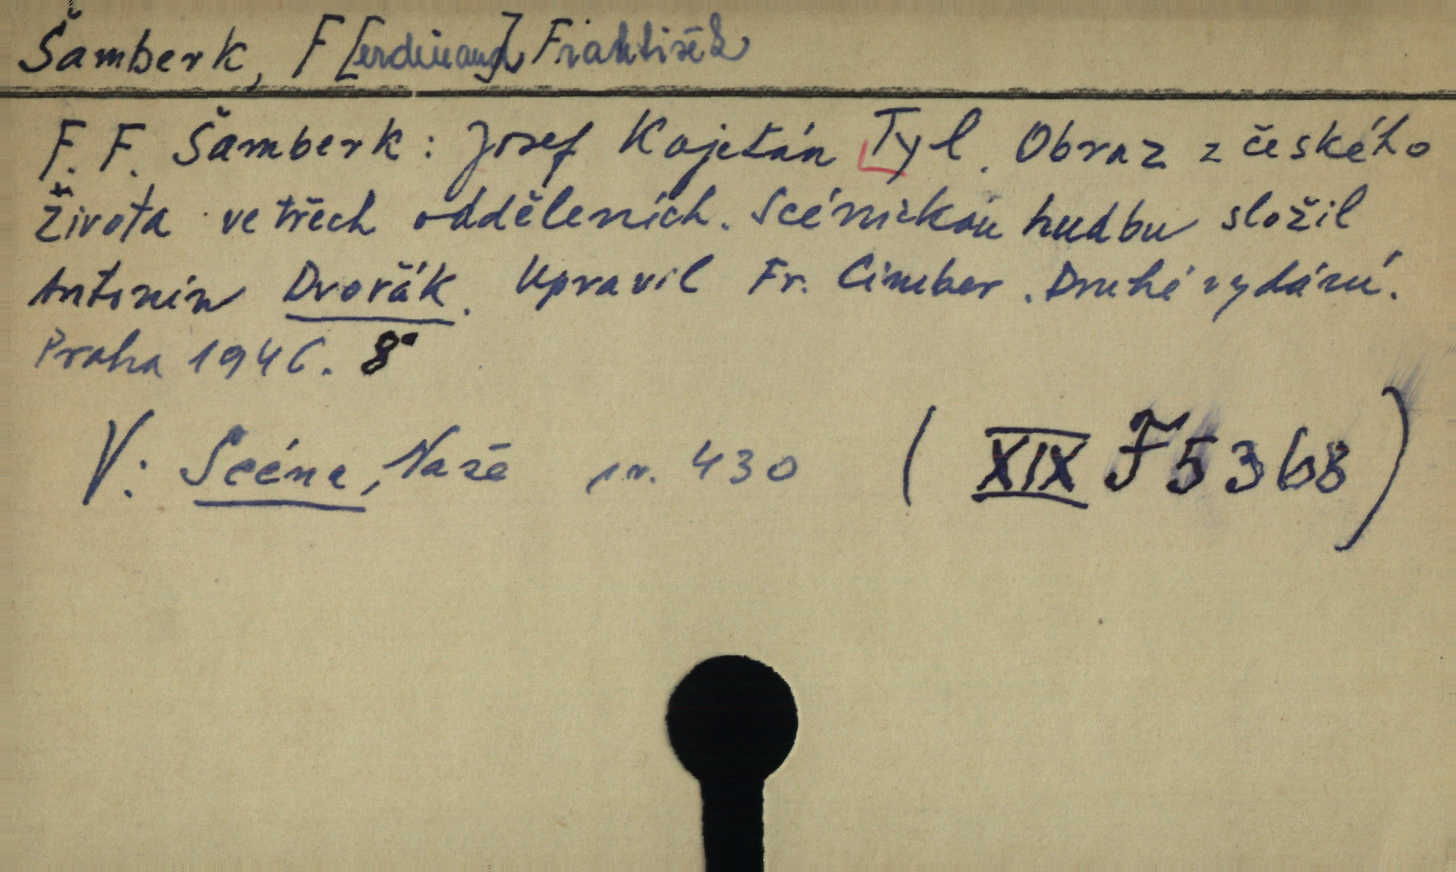 Šamberk, F[erdinand] František
F. F. Šamberk: Josef Kajetán Tyl. Obraz z českého
života ve třech odděleních. Scénickou hudbu složil
Antonín Dvořák. Upravil Fr. Cimber. Druhé vydání.
Praha 1946. 8°
V: Scéna, Naše sv. 430 (XIX F 5368)